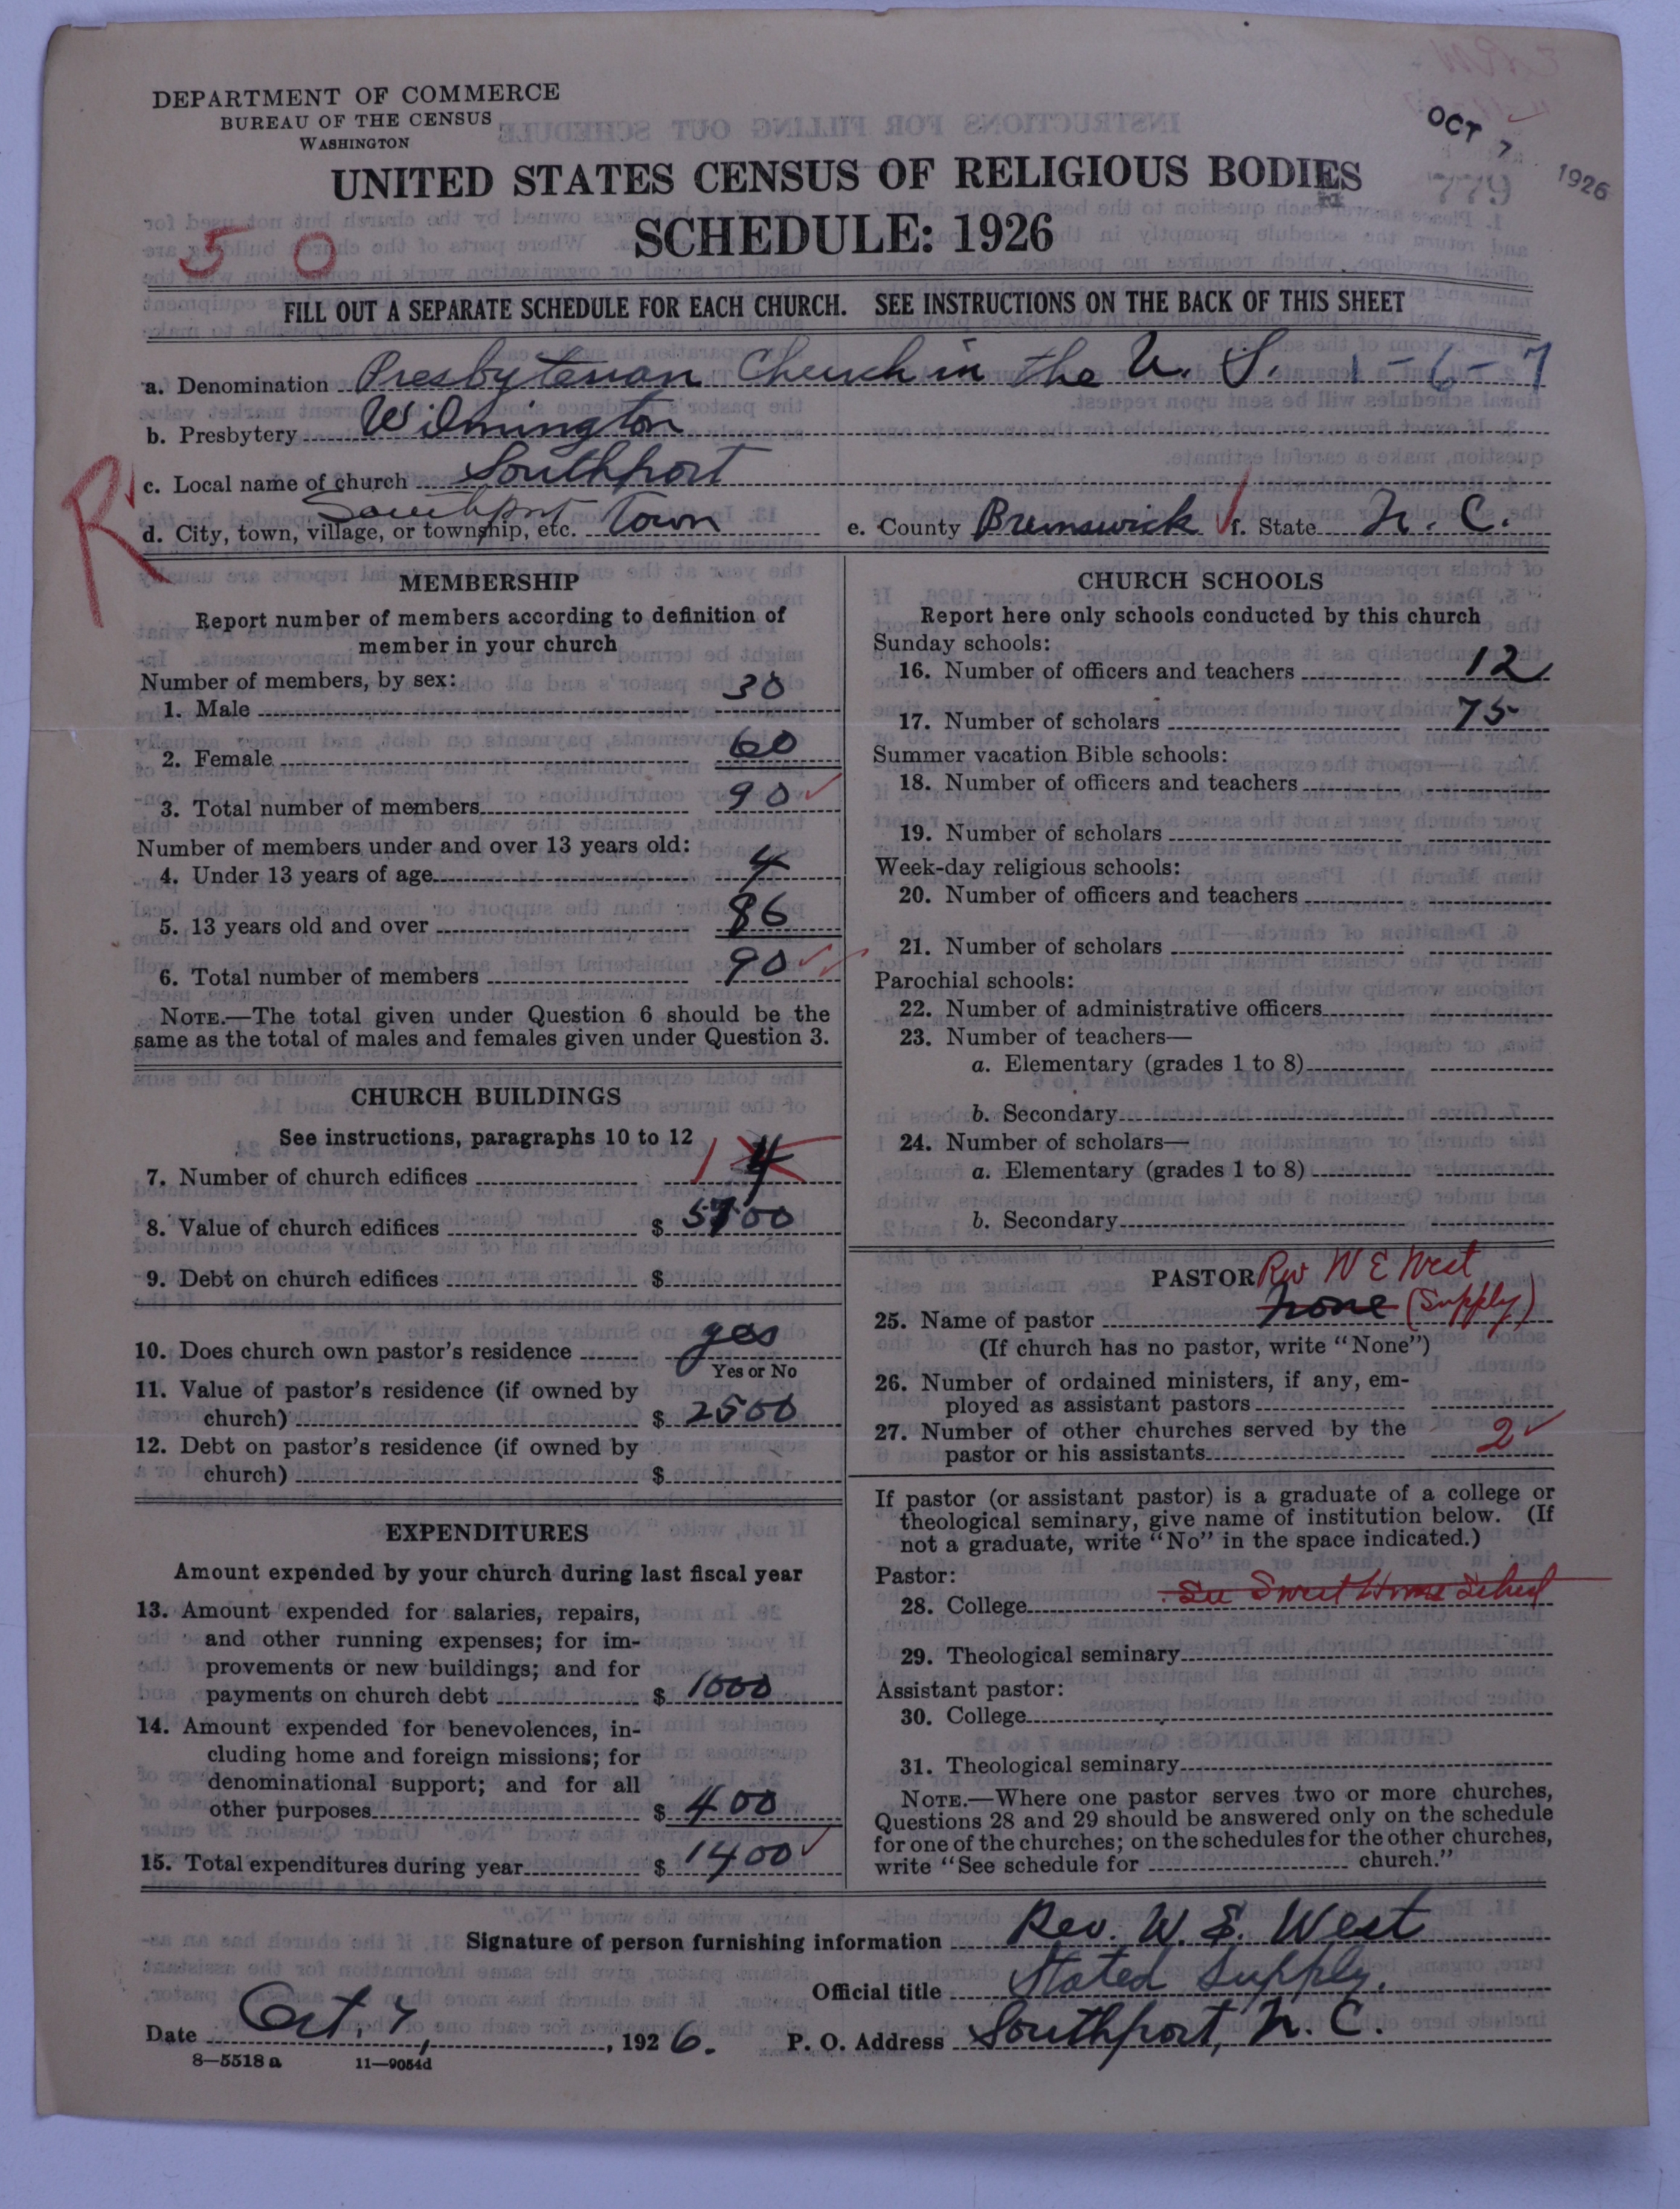 DEPARTMENT OF COMMERCE
BUREAU OF THE CENSUS
WASHINGTON
OCT 7 1926
779
UNITED STATES CENSUS OF RELIGIOUS BODIES
SCHEDULE: 1926
5 0
FILL OUT A SEPARATE SCHEDULE FOR EACH CHURCH. SEE INSTRUCTIONS ON THE BACK OF THIS SHEET
a. Denomination Presbyterian Church in the U. S. 1-6-7
b. Presbytery Wilmington
R
c. Local name of church Southport
Southport
d. City, town, village, or township, etc. Town e. County Brunswick f. State N. C.
MEMBERSHIP
Report number of members according to definition of
member in your church
Number of members, by sex:
1. Male 30
2. Female 60
3. Total number of members 90
Number of members under and over 13 years old:
4. Under 13 years of age 4
5. 13 years old and over 86
6. Total number of members 90
NOTE.—The total given under Question 6 should be the
same as the total of males and females given under Question 3.
CHURCH BUILDINGS
See instructions, paragraphs 10 to 12
7. Number of church edifices 1 4
8. Value of church edifices $
9. Debt on church edifices $
10. Does church own pastor's residence yes
Yes or No
11. Value of pastor's residence (if owned by
church) $ 2500
12. Debt on pastor's residence (if owned by
church) $
EXPENDITURES
Amount expended by your church during last fiscal year
13. Amount expended for salaries, repairs,
and other running expenses; for im-
provements or new buildings; and for
payments on church debt $ 1000
14. Amount expended for benevolences, in-
cluding home and foreign missions; for
denominational support; and for all
other purposes $ 400
15. Total expenditures during year $ 1400
CHURCH SCHOOLS
Report here only schools conducted by this church
Sunday schools:
16. Number of officers and teachers 12
17. Number of scholars 75
Summer vacation Bible schools:
18. Number of officers and teachers
19. Number of scholars
Week-day religious schools:
20. Number of officers and teachers
21. Number of scholars
Parochial schools:
22. Number of administrative officers
23. Number of teachers—
a. Elementary (grades 1 to 8)
b. Secondary
24. Number of scholars—
a. Elementary (grades 1 to 8)
b. Secondary
PASTOR Rev W E West
25. Name of pastor None (Supply)
(If church has no pastor, write "None")
26. Number of ordained ministers, if any, em-
ployed as assistant pastors
27. Number of other churches served by the
pastor or his assistants 2
If pastor (or assistant pastor) is a graduate of a college or
theological seminary, give name of institution below. (If
not a graduate, write "No" in the space indicated.)
Pastor:
28. College See Sweet Home Sched
29. Theological seminary
Assistant pastor:
30. College
31. Theological seminary
NOTE.—Where one pastor serves two or more churches,
Questions 28 and 29 should be answered only on the schedule
for one of the churches; on the schedules for the other churches,
write "See schedule for church."
Signature of person furnishing information Rev. W. E. West
Official title Stated Supply.
Date Oct. 4, 1926. P. O. Address Southport, N. C.
8—5518a 11—9054d